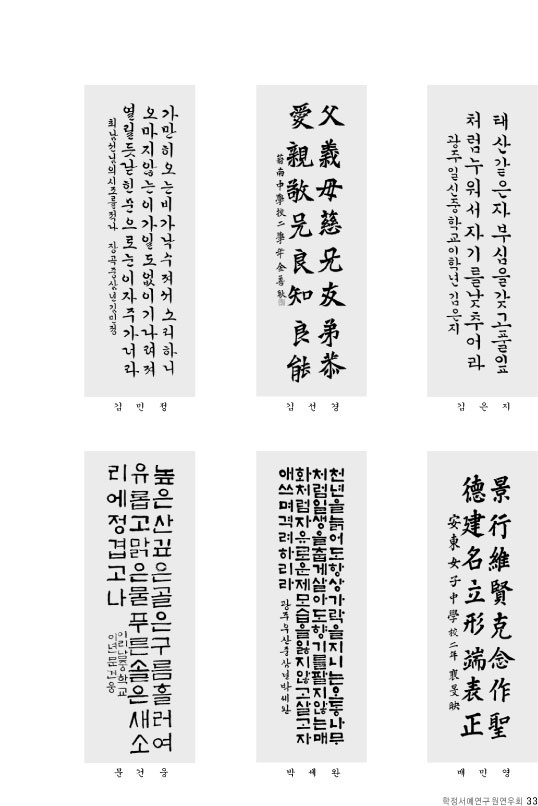 가만히오는비가낙수져서소리하니
오마지않는이가일도없이기다려져
열릴듯닫힌문으로눈이자주가더라
최남선님의시조를적다 장곡중삼년김민정
김 민 정
父義母慈兄友弟恭
愛親敬兄良知良能
南中學校二學年金善敬
김 선 경
태산같은자부심을갖고풀잎
처럼누워서자기를낮추어라
광주일신중학교이학년김은지
김 은 지
높은산깊은골은구름흘러여
유롭고맑은물푸른솔은새소
리에정겹고나
이리남중학교
이년문건웅
문 건 웅
천년을늙어도항상가락을지니는오동나무
처럼일생을춥게살아도향기를팔지않는매
화처럼자유로운제모습을잃지않고살고자
애쓰며격려하리라 광주무산중삼년박세완
박 세 완
景行維賢克念作聖
德建名立形端表正
安東女子中學校二年 裵旻映
배 민 영
학정서예연구원연우회 33